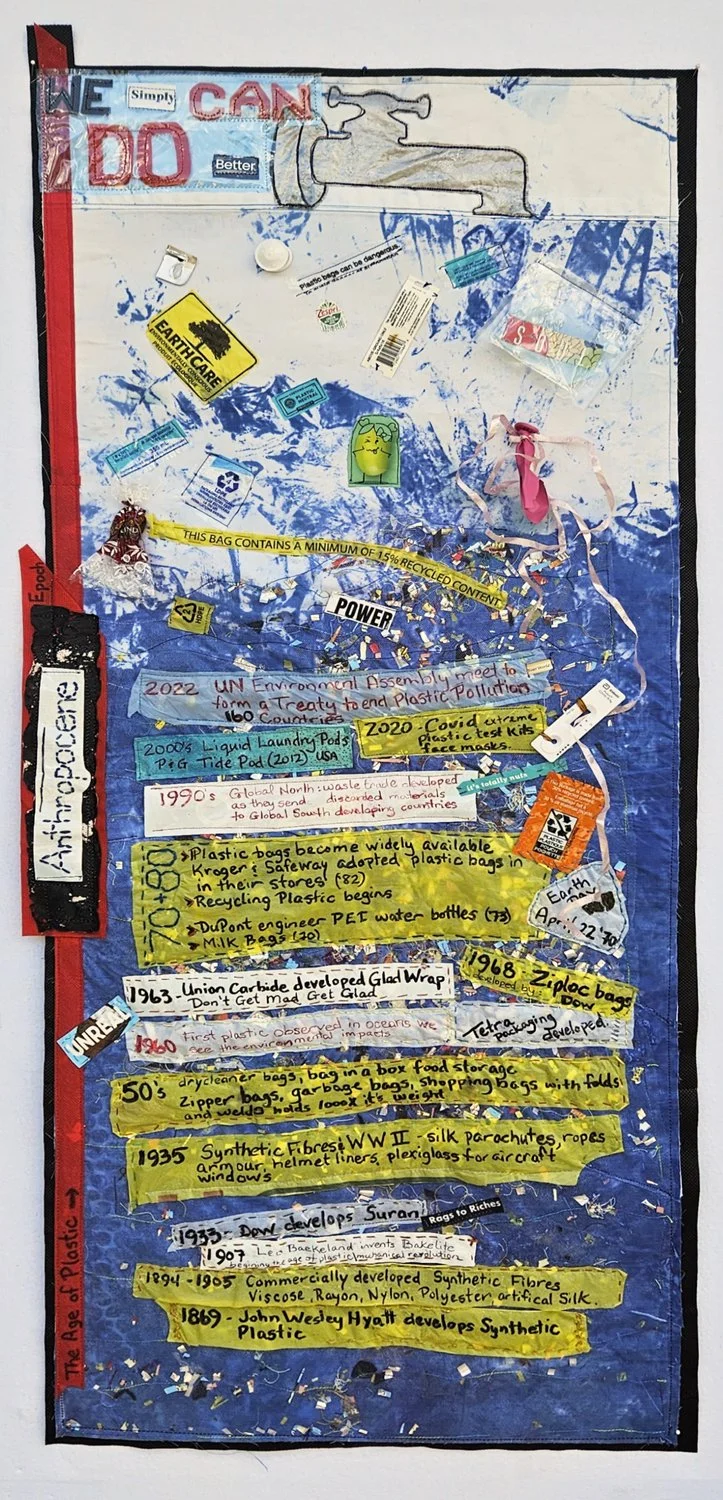 WE Simply CAN
DO Better
Plastic bags can be dangerous.
Zespri
EARTHCARE
PLASTIC
NEUTRAL
THIS BAG CONTAINS A MINIMUM OF 15% RECYCLED CONTENT
POWER
2
HDPE
Epoch
Anthropocene
2022 UN Environment Assembly meet to
form a Treaty to end Plastic Pollution
160 Countries
2020 - Covid extreme
plastic test kits
face masks.
2000's Liquid Laundry Pods
P+G Tide Pod (2012) USA
1990's Global North: waste trade developed
as they send discarded materials
to Global South developing countries
it's totally nuts
70+80
>Plastic bags become widely available
Kroger & Safeway adopted plastic bags in
in their stores (82)
>Recycling Plastic begins
>DuPont engineer PET water bottles (73)
>Milk Bags (70)
Earth
Day
April 22 '70
1963 - Union Carbide developed Glad Wrap
Don't Get Mad Get Glad
1968 - Ziploc bags
developed by: Dow
UNREAL
1960 First plastic observed in oceans we
see the environmental impacts
Tetra
packaging
developed.
50's drycleaner bags, bag in a box food storage
Zipper bags, garbage bags, shopping bags with folds
and welds holds 1000x it's weight
1935 Synthetic Fibres: WW II - silk parachutes, ropes
armour, helmet liners, plexiglass for aircraft
windows
1933 - Dow develops Suran
Rags to Riches
1907 Leo Baekeland invents Bakelite
begining the age of plastic/mechanical revolution
1894 - 1905 Commercially developed Synthetic Fibres
Viscose, Rayon, Nylon, Polyester, artifical Silk.
1869 - John Wesley Hyatt develops Synthetic
Plastic
The Age of Plastic →